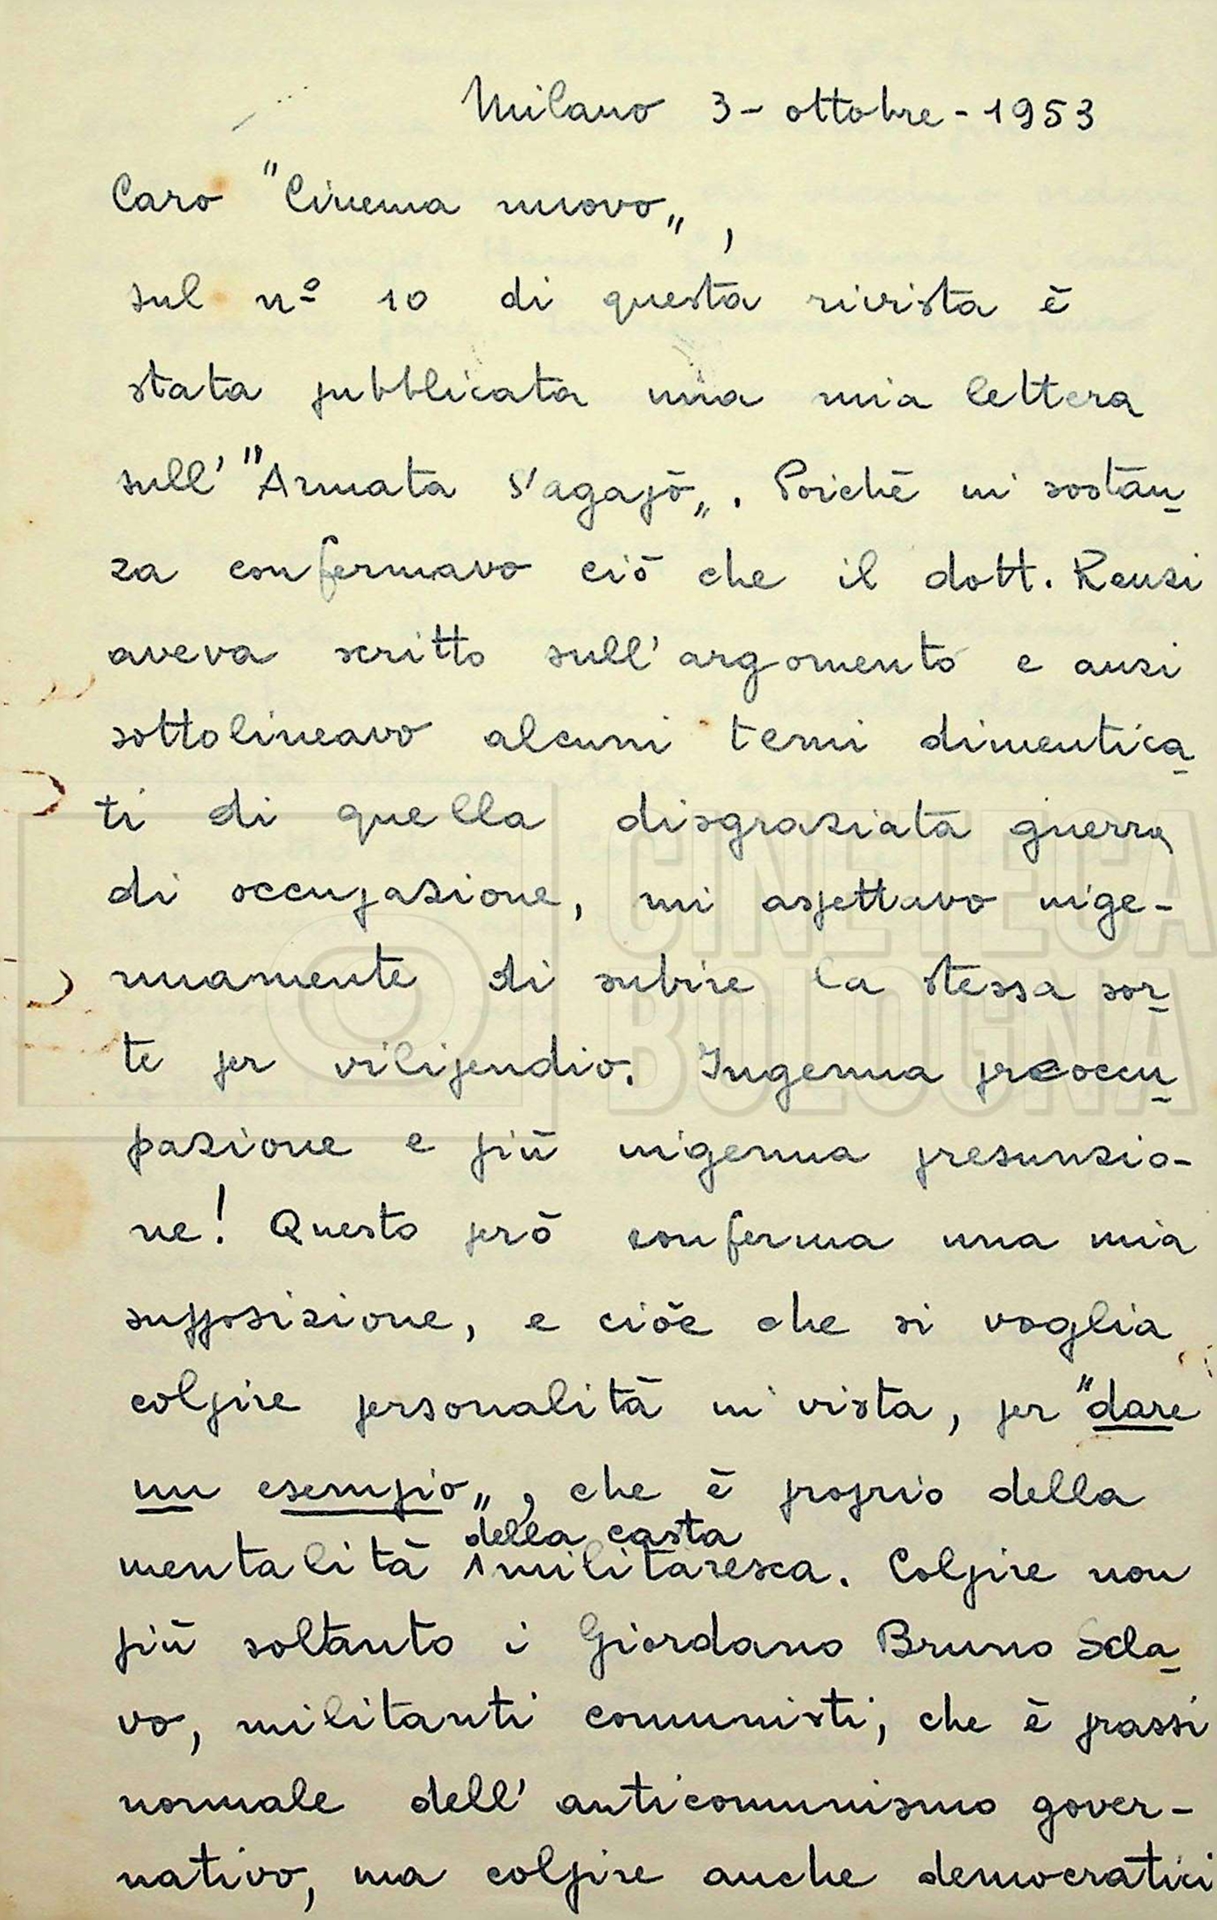 Milano 3 - ottobre - 1953
Caro "Cinema nuovo„,
sul nº 10 di questa rivista è
stata pubblicata una mia lettera
sull'"Armata S'agapò„. Poichè in sostan-
za confermavo ciò che il dott. Renzi
aveva scritto sull'argomento e anzi
sottolineavo alcuni temi dimentica-
ti di quella disgraziata guerra
di occupazione, mi aspettavo inge-
nuamente di subire la stessa sor-
te per vilipendio. Ingenua preoccu-
pazione e più ingenua presunzio-
ne! Questo però conferma una mia
supposizione, e cioè che si voglia
colpire personalità in vista, per "dare
un esempio„, che è proprio della
della casta
mentalità militaresca. Colpire non
più soltanto i Giordano Bruno Scla-
vo, militanti comunisti, che è prassi
normale dell'anticomunismo gover-
nativo, ma colpire anche democratici
CINETECA
BOLOGNA